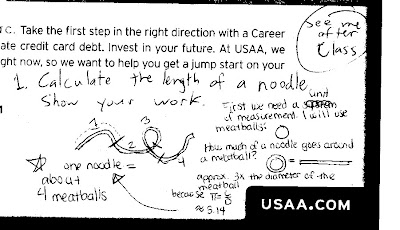 C. Take the first step in the right direction with a Career
ate credit card debt. Invest in your future. At USAA, we
ght now, so we want to help you get a jump start on your
See me
after
Class
1. Calculate the length of a noodle
Show your work.
First we need a unit
of measurement. I will use
meatballs:
1
2
3
4
How much of a noodle goes around
a meatball?
=
approx. 3x the diameter of the
meatball
because π=
≈ 3.14
one noodle =
about
4 meatballs
USAA.COM